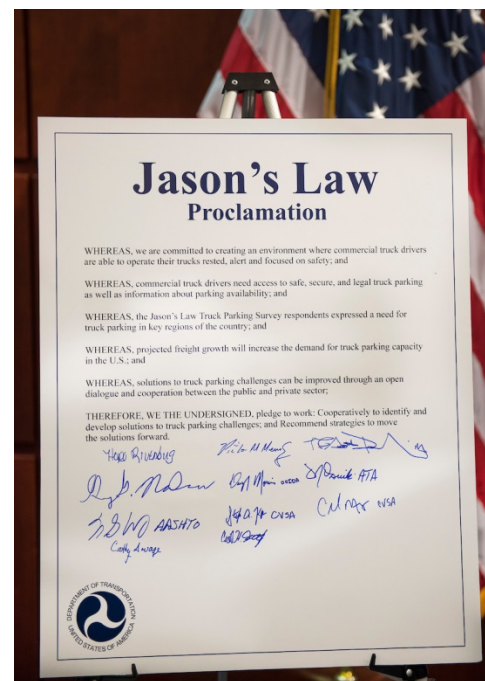 Jason's Law
Proclamation
WHEREAS, we are committed to creating an environment where commercial truck drivers
are able to operate their trucks rested, alert and focused on safety; and
WHEREAS, commercial truck drivers need access to safe, secure, and legal truck parking
as well as information about parking availability; and
WHEREAS, the Jason's Law Truck Parking Survey respondents expressed a need for
truck parking in key regions of the country; and
WHEREAS, projected freight growth will increase the demand for truck parking capacity
in the U.S.; and
WHEREAS, solutions to truck parking challenges can be improved through an open
dialogue and cooperation between the public and private sector;
THEREFORE, WE THE UNDERSIGNED, pledge to work: Cooperatively to identify and
develop solutions to truck parking challenges; and Recommend strategies to move
the solutions forward.
ATA
AASHTO
CVSA
CVSA
Cathy
DEPARTMENT OF TRANSPORTATION
UNITED STATES OF AMERICA